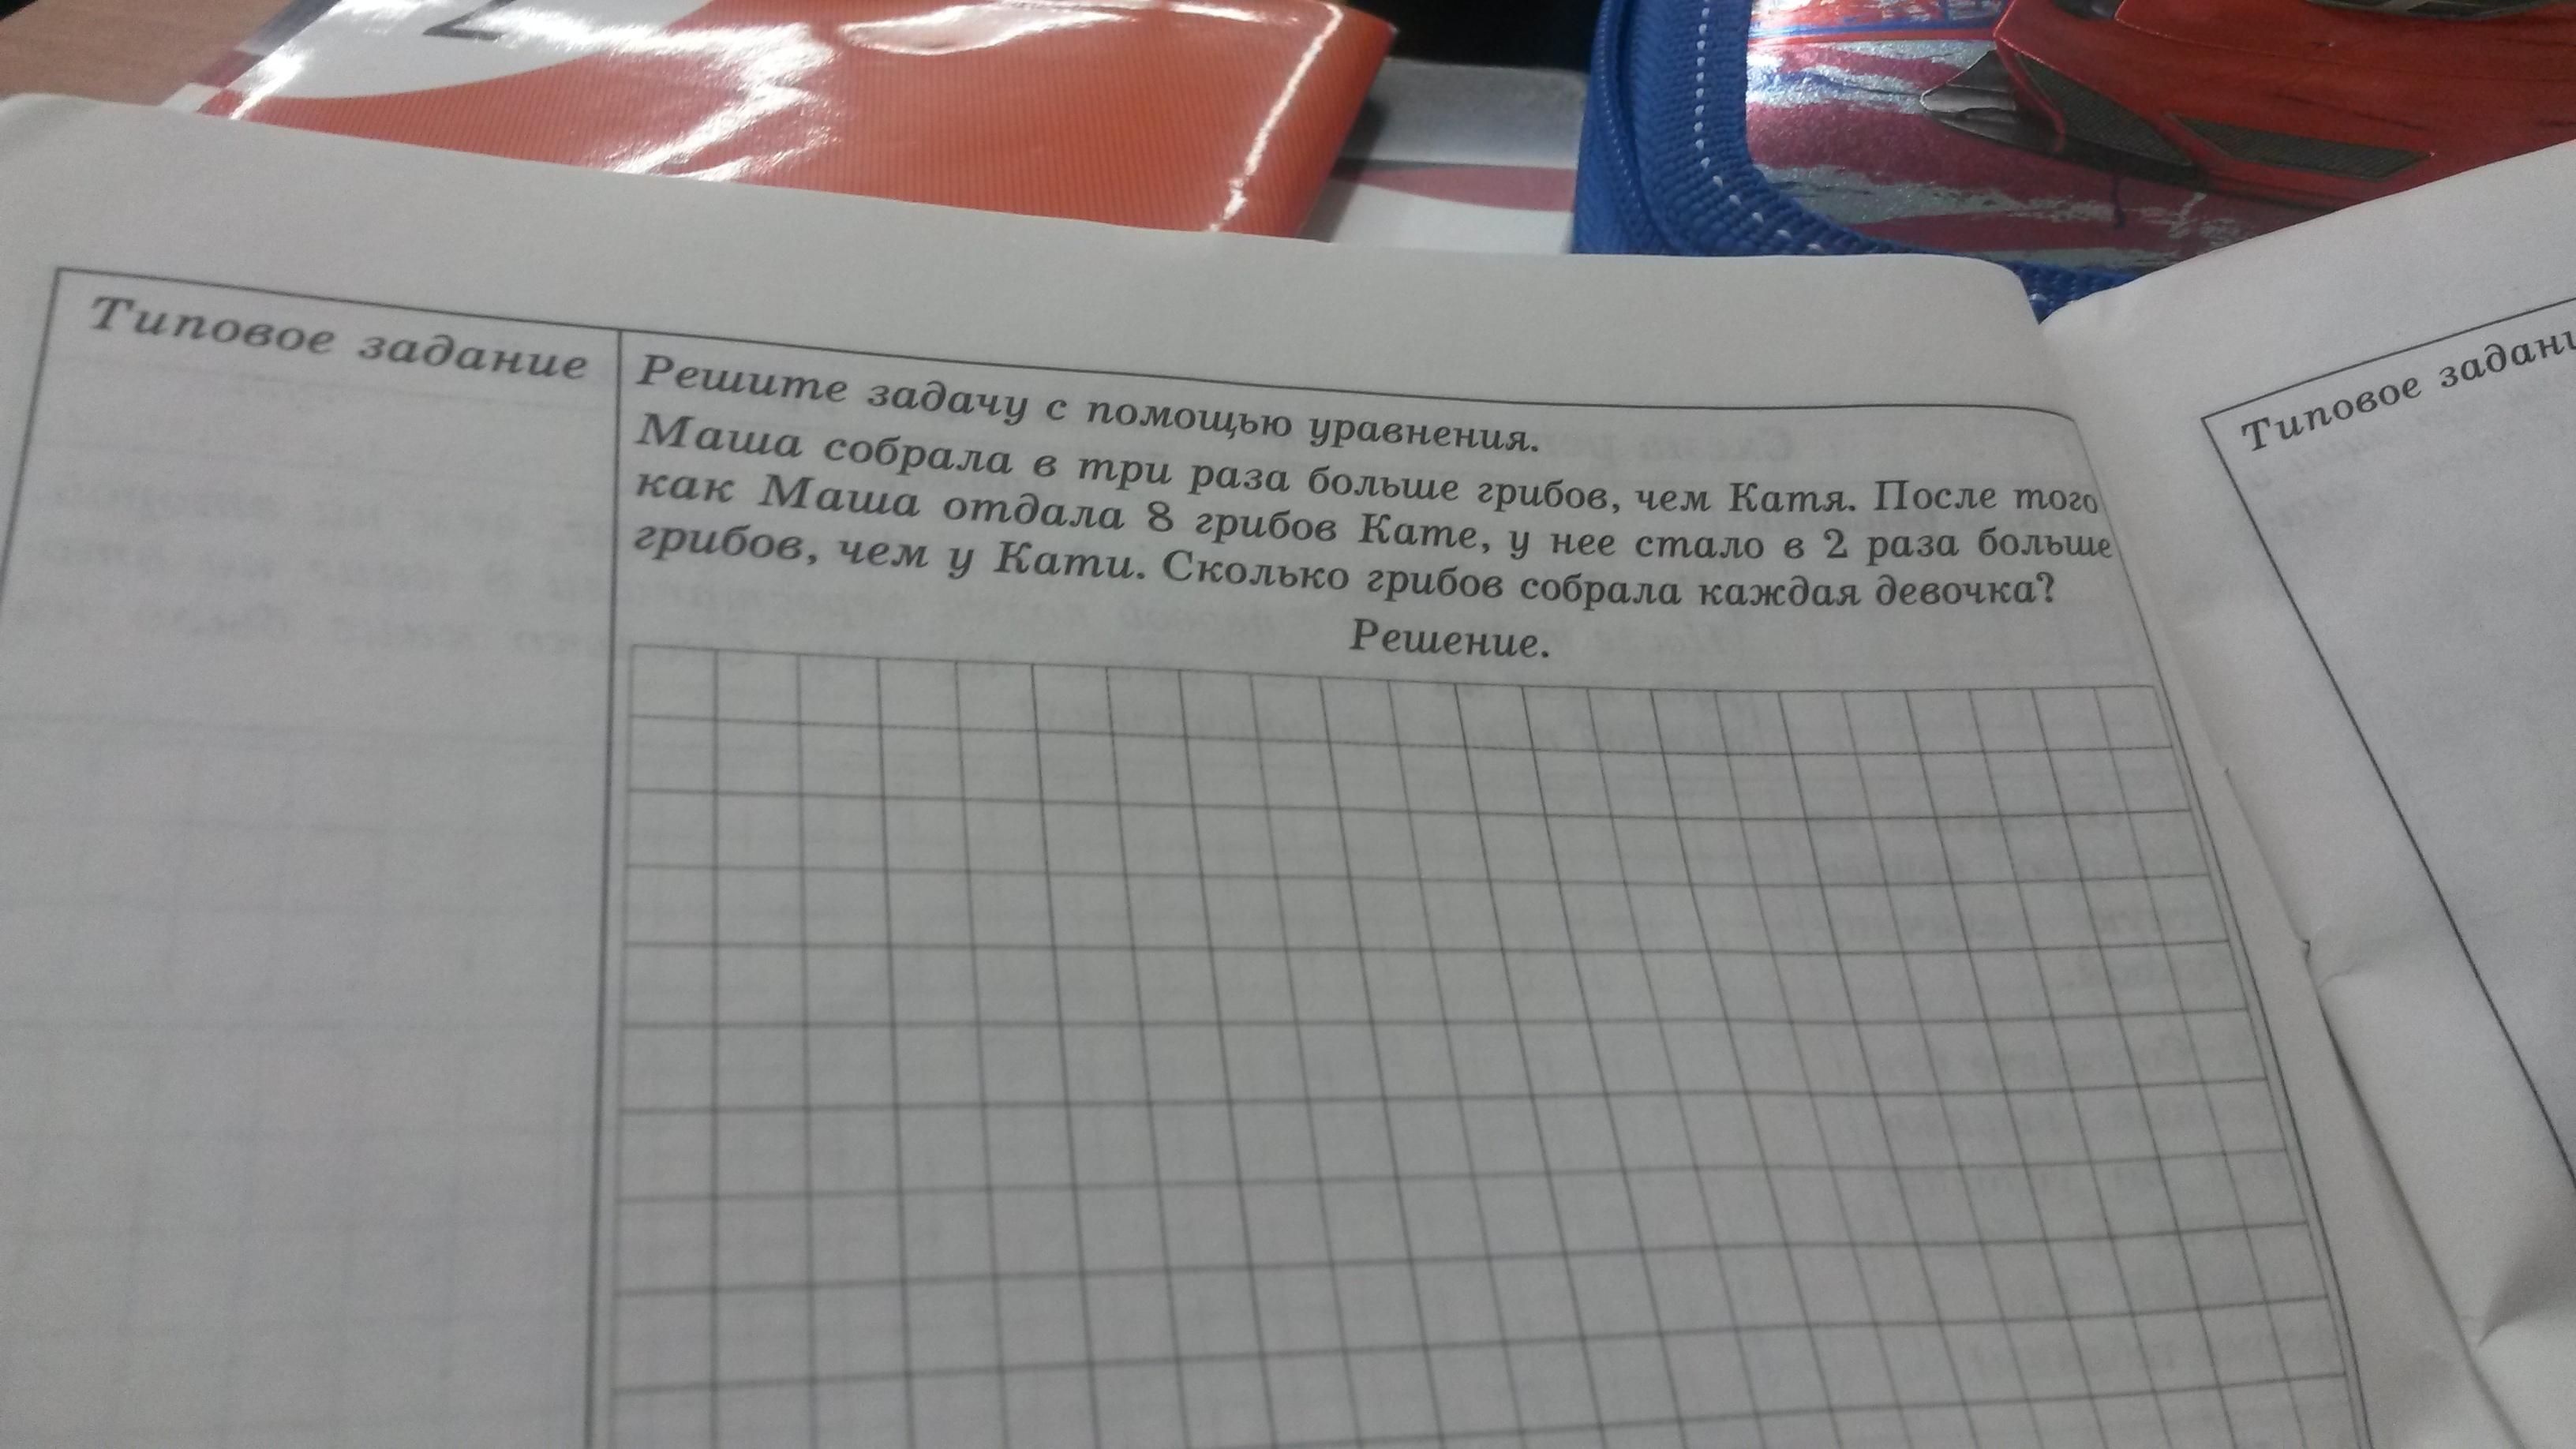 Типовое задание
Решите задачу с помощью уравнения.
Маша собрала в три раза больше грибов, чем Катя. После того
как Маша отдала 8 грибов Кате, у нее стало в 2 раза больше
грибов, чем у Кати. Сколько грибов собрала каждая девочка?
Решение.
Типовое задани